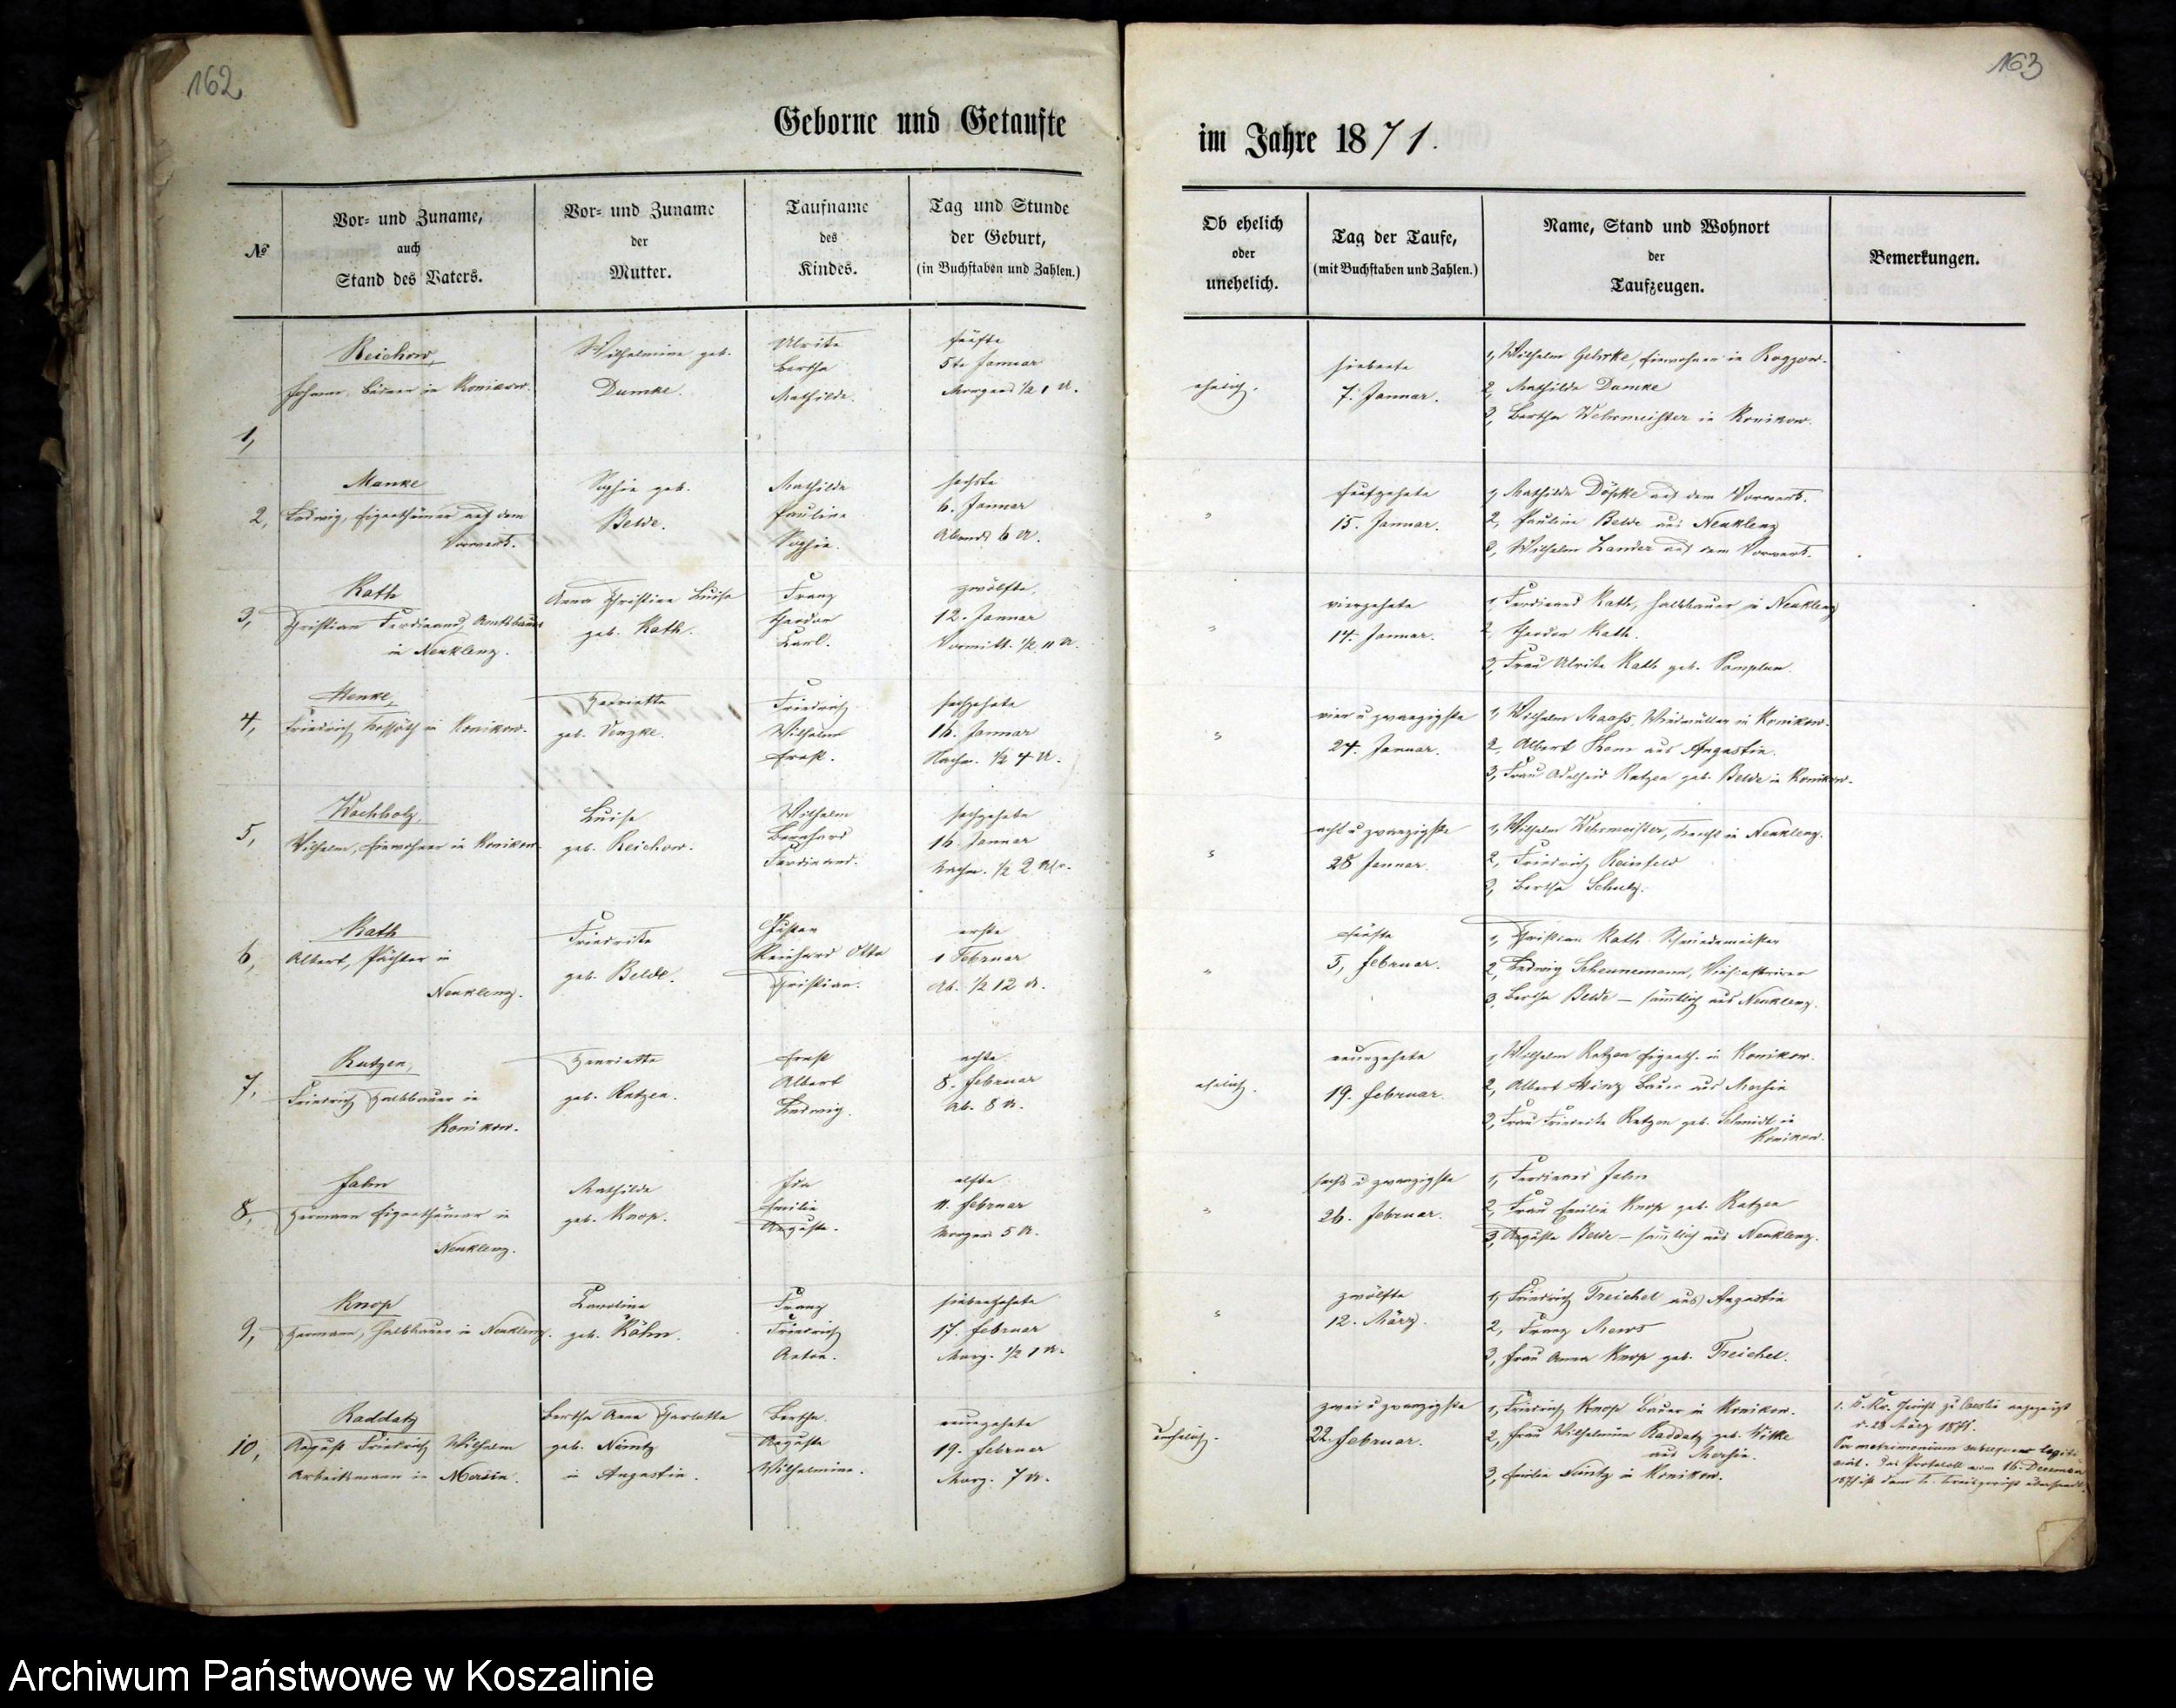 162
Geborne und Getaufte
№
Vor- und Zuname,
auch
Stand des Vaters.
Vor- und Zuname
der
Mutter.
Taufname
des
Kindes.
Tag und Stunde
der Geburt,
(in Buchstaben und Zahlen.)
1,
Reichow,
Johann, Büdner in Konikow.
Wilhelmine geb.
Dumke.
Ulrike
Bertha
Mathilde.
fünfte
5te Januar
Morgens ½ 1 U.
2,
Manke
Ludwig, Eigenthümer auf dem
Vorwerk.
Sophie geb.
Belde.
Mathilde
Pauline
Sophie.
sechste
6. Januar
Abends 6 U.
3,
Rath
Christian Ferdinand,
in Neuklenz.
Anna Christine Luise
geb. Rath.
Franz
Theodor
Karl.
zwölfte
12. Januar
Vormitt. ½ 11 U.
4,
Henke,
Friedrich in Konikow.
Henriette
geb. Venzke.
Friedrich
Wilhelm
Ernst.
sechzehnte
16. Januar
Nachm. ½ 4 U.
5,
Wachholz,
Wilhelm, Einwohner in Konikow
Luise
geb. Reichow.
Wilhelm
Bernhard
Ferdinand.
sechzehnte
16. Januar
Nachm. ½ 2 Uhr.
6,
Rath
Albert, Pächter in
Neuklenz.
Friedrike
geb. Belde.
Gustav
Reinhard Otto
Christian.
erste
1 Februar
Ab. ½ 12 U.
7,
Ratzen,
Friedrich Halbbauer in
Konikow.
Henriette
geb. Ratzen.
Ernst
Albert
Ludwig.
achte
8. Februar
Ab. 8 U.
8,
Jahn
Hermann Eigenthümer in
Neuklenz.
Mathilde
geb. Knop.
Ida
Emilie
Auguste.
elfte
11. Februar
Morgens 5 U.
9,
Knop
Hermann, Halbbauer in Neuklenz.
Karoline
geb. Köhn.
Franz
Friedrich
Anton.
siebenzehnte
17. Februar
Morg. ½ 1 U.
10,
Raddatz
August Friedrich Wilhelm
Arbeitsmann in Mersin.
Bertha Anna Charlotte
geb. Nimtz
in Augustin.
Bertha
Auguste
Wilhelmine.
neunzehnte
19. Februar
Morg. 7 U.
163
im Jahre 1871.
Ob ehelich
oder
unehelich.
Tag der Taufe,
(mit Buchstaben und Zahlen.)
Name, Stand und Wohnort
der
Taufzeugen.
Bemerkungen.
ehelich.
siebente
7. Januar.
1, Wilhelm Gehrke, Einwohner in Roggow.
2, Mathilde Dumke
3, Bertha Wehrmeister in Konikow.
"
fünfzehnte
15. Januar.
1, Mathilde Döpke auf dem Vorwerk.
2, Pauline Belde aus Neuklenz
3, Wilhelm Zander auf dem Vorwerk.
"
vierzehnte
14. Januar.
1, Ferdinand Rath, Halbbauer in Neuklenz
2, Theodor Rath.
3, Frau Ulrike Rath geb. Pomplun.
"
vier u zwanzigste
24. Januar.
1, Wilhelm Maass, Windmüller in Konikow.
2, Albert aus Augustin.
3, Frau Adelheid Ratzen geb. Belde in Konikow.
"
acht u zwanzigste
28 Januar.
1, Wilhelm Wehrmeister, Knecht in Neuklenz.
2, Friedrich Reinfeld
3, Bertha Schulz.
"
fünfte
5, Februar.
1, Christian Rath, Schmiedemeister
2, Ludwig Scheunemann,
3, Bertha Belde — sämtlich aus Neuklenz.
ehelich.
neunzehnte
19. Februar.
1, Wilhelm Ratzen Eigenth. in Konikow.
2, Albert Hinz Bauer aus Mersin
3, Frau Friedrike Ratzen geb. Schmidt in
Konikow.
"
sechs u zwanzigste
26. Februar.
1, Ferdinand Jahn
2, Frau Emilie Knop geb. Ratzen
3, Auguste Belde — sämtlich aus Neuklenz.
"
zwölfte
12. März.
1, Friedrich Treichel aus Augustin
2, Franz Mews
3, Frau Anna Knop geb. Treichel.
unehelich.
zwei u zwanzigste
22. Februar.
1, Friedrich Knop Bauer in Konikow.
2, Frau Wilhelmine Raddatz geb. Witke
aus Mersin.
3, Emilie Nimtz in Konikow.
Kr. Gericht zu Coeslin angezeigt
d. 28 März 1871.
Per matrimonium subsequens legiti-
mirt. Das Protokoll vom 16. December
1871 ist dem K. Kreisgericht übersandt.
Archiwum Państwowe w Koszalinie